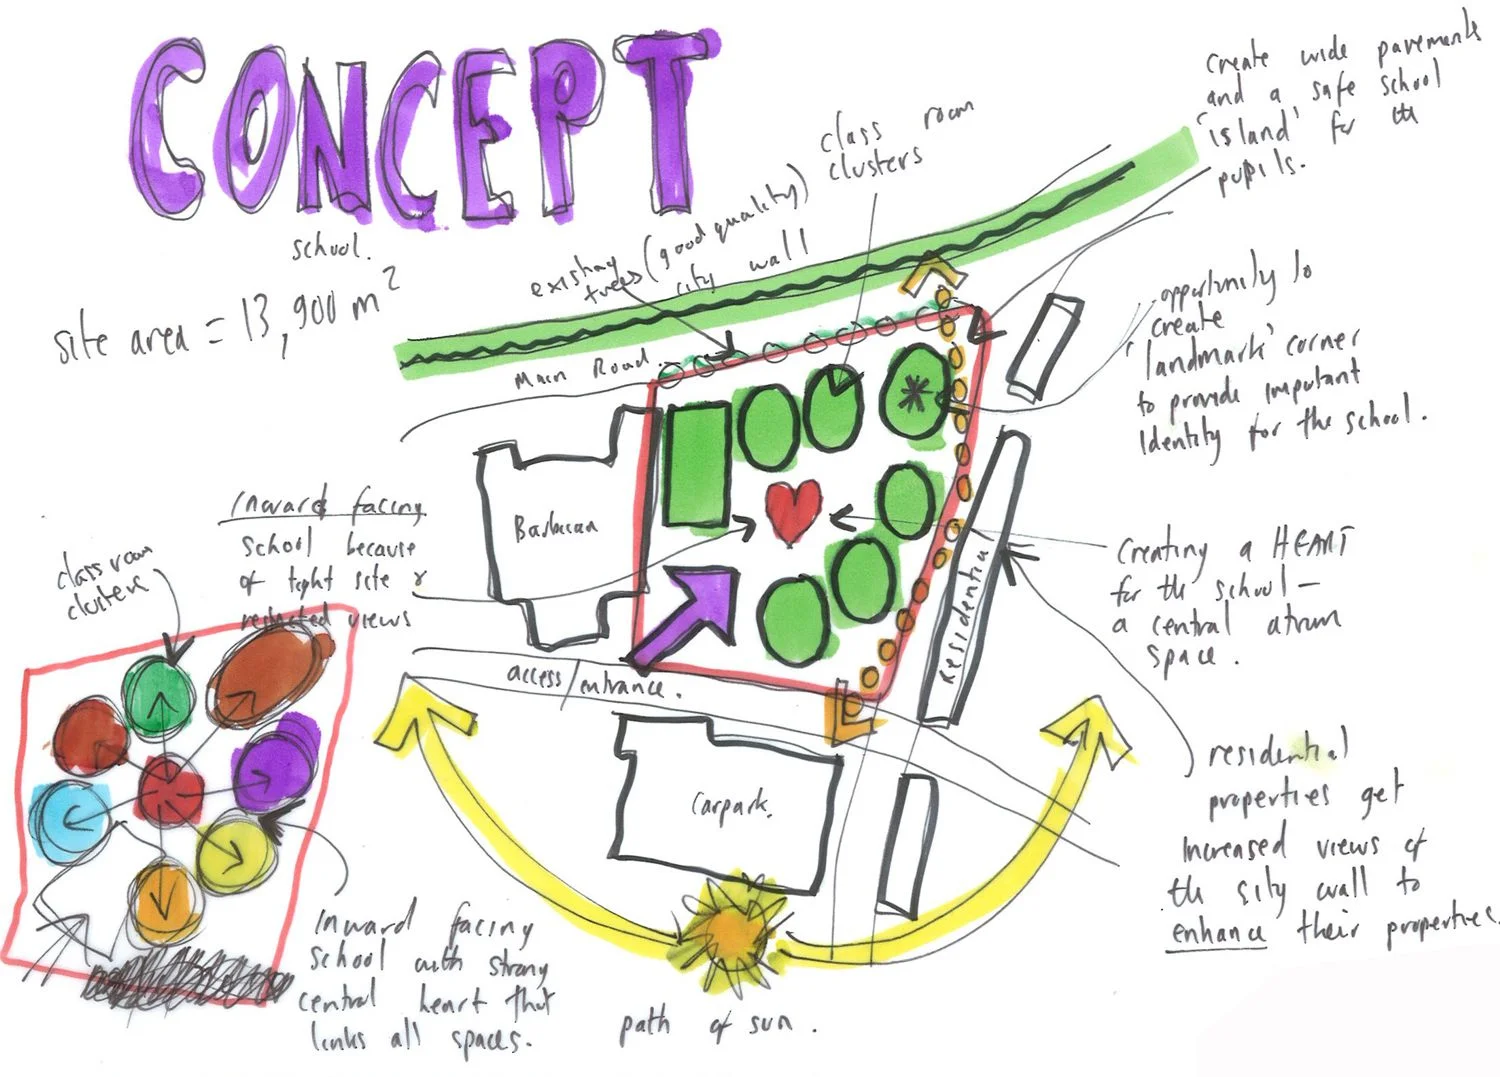 CONCEPT
school.
site area = 13,900 m²
existing trees (good quality)
city wall
class room
clusters
create wide pavements
and a safe school
'island' for the
pupils.
opportunity to
create
'landmark' corner
to provide important
identity for the school.
Main Road.
Barbican
Inward facing
school because
of tight site &
restricted views
classroom
clusters
access/entrance.
Residential
Creating a HEART
for the school –
a central atrium
space.
Carpark.
residential
properties get
increased views of
the city wall to
enhance their properties.
Inward facing
school with strong
central heart that
links all spaces.
path of sun.